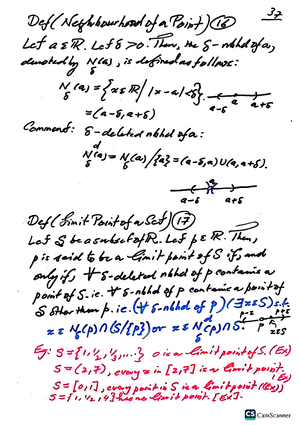 37
Def (Neighbourhood of a Point) (16)
Let a ∈ ℝ. Let δ > 0. Then, the δ-nbhd of a,
denoted by N_δ(a), is defined as follows:
N_δ(a) = {x ∈ ℝ / |x-a| < δ}.
a-δ a a+δ
= (a-δ, a+δ)
Comment: δ-deleted nbhd of a:
N_δ^d(a) = N_δ(a)/{a} = (a-δ, a) ∪ (a, a+δ).
a-δ a a+δ
Def (Limit Point of a Set) (17)
Let S be a subset of ℝ. Let p ∈ ℝ. Then,
p is said to be a limit point of S if, and
only if, ∀ δ-deleted nbhd of p contains a
point of S. i.e. ∀ δ-nbhd of p contains a point of
S other than p. i.e. (∀ δ-nbhd of p) (∃ x∈S) s.t.
x ∈ N_δ(p) ∩ (S/{p}) or x ∈ N_δ^d(p) ∩ S.
p x∈S
Eg: S = {1, ½, ⅓, ...} 0 is a limit point of S. (Ex)
S = (2,7), every x in [2,7] is a limit point. (Ex)
S = [0,1], every point in S is a limit point (Ex)
S = {1, ½, 4} has no limit point. [Ex].
CS CamScanner